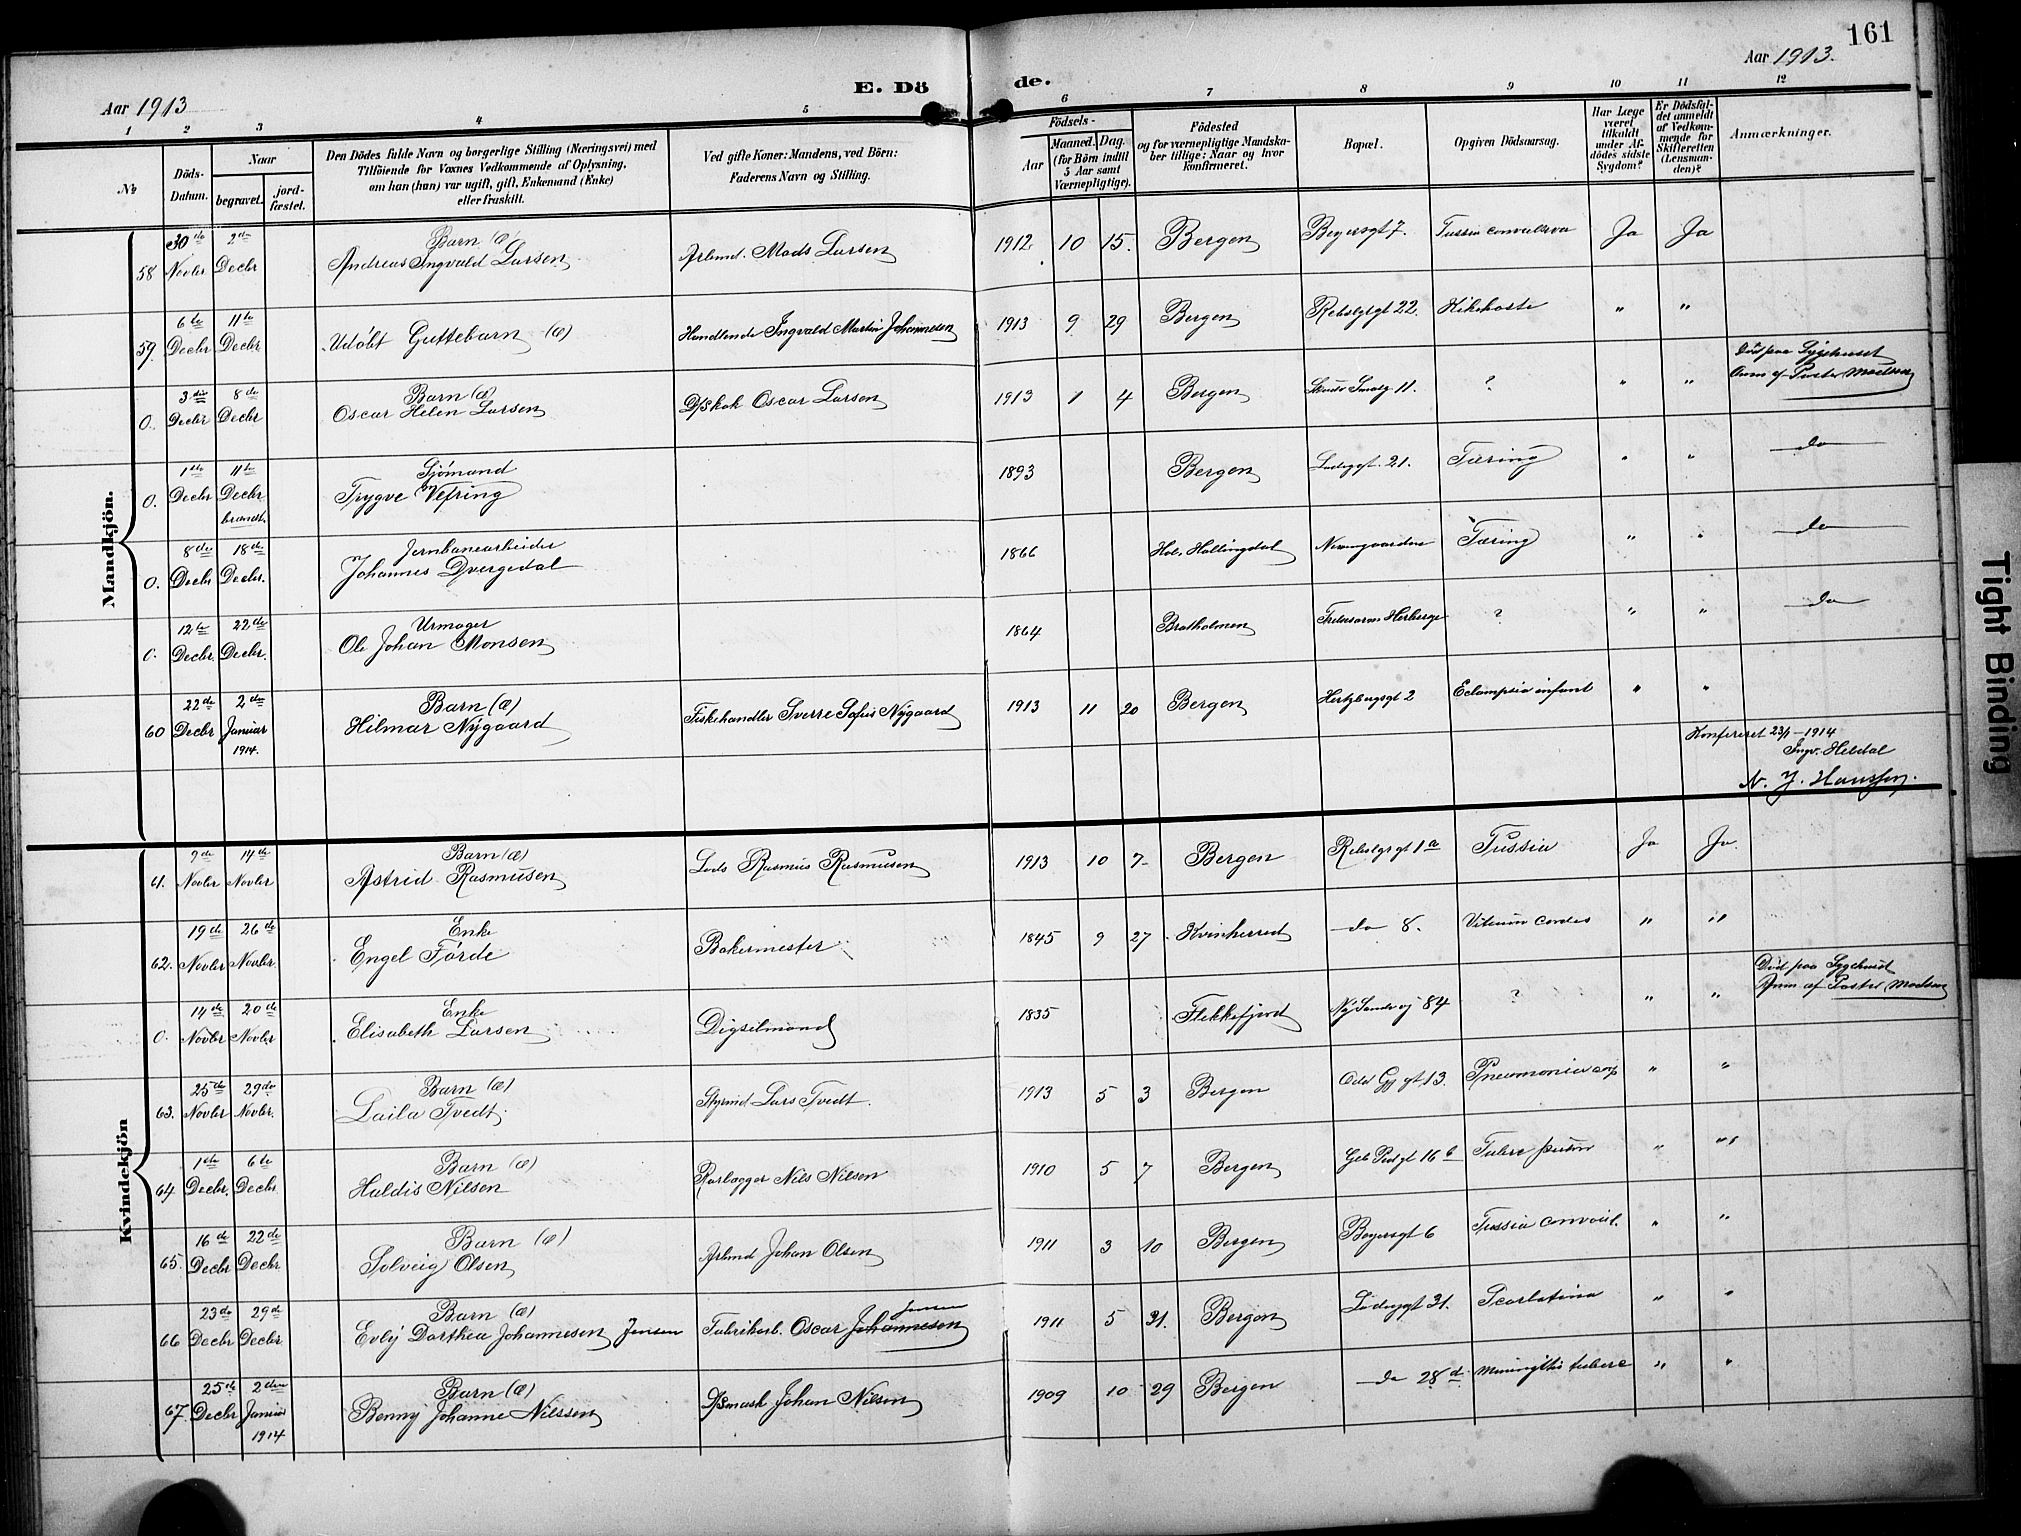 161
Aar 1913
E. Döde.
Aar 1913.
1 2 3 4 5 6 7 8 9 10 11 12
No
Döds-Datum.
Naar
begravet.
jord-fæstet.
Den Dödes fulde Navn og borgerlige Stilling (Næringsvei) med
Tilföiende for Voxnes Vedkommende af Oplysning,
om han (hun) var ugift, gift, Enkemand (Enke)
eller fraskilt.
Ved gifte Koner: Mandens, ved Börn:
Faderens Navn og Stilling.
Födsels-
Aar
Maaned. Dag.
(for Börn indtil
5 Aar samt
Værnepligtige).
Födested
og for værnepligtige Mandska-
ber tillige: Naar og hvor
konfirmeret.
Bopæl.
Opgiven Dödsaarsag.
Har Læge
været
tilkaldt
under Af-
dödes sidste
Sygdom?
Er Dödsfal-
det anmeldt
af Vedkom-
mende for
Skifteretten
(Lensman-
den)?
Anmærkninger.
Mandkjön.
58 30de Novbr 2den Decbr Barn (æ) Andreas Ingvald Larsen Arbmd. Mads Larsen 1912 10 15. Bergen Beyersgt 7. Tussis convulsiva Ja Ja
59. 6te Decbr 11te Decbr Udöbt Guttebarn (æ) Handlende Ingvald Martin Johannesen 1913 9 29 Bergen Rebslgt 22. Kikhoste " "
0. 3die Decbr 8de Decbr Barn (æ) Oscar Helen Larsen D/Skok Oscar Larsen 1913 1 4 Bergen 11. ? " " Död paa Sygehuset Anm af Pastor Madsen
0. 1ste Decbr 11te Decbr brændt. Sjömand Trygve Vefring 1893 Bergen Ladegt. 21. Tæring " " do
0. 8de Decbr 18de Decbr. Jernbanearbeider Johannes Dvergedal 1866 Hol, Hallingdal Nevengaarden Tæring " " do
0. 12te Decbr. 22de Decbr. Urmager Ole Johan Monsen 1864 Bratholmen Frelsesarm Herberge ? " " do
60 22de Decbr 2den Januar 1914. Barn (æ) Hilmar Nygaard Fiskehandler Sverre Sofus Nygaard 1913 11 20 Bergen Hertzbergsgt 2 Eclampsia infant " "
Konfereret 23/1-1914
Ingv. Heldal
N. J. Hanssen.
Kvindekjön
61. 9de Novbr 14de Novbr Barn (æ) Astrid Rasmusen Lods Rasmus Rasmusen 1913 10 7 Bergen Rebslgrgt 1a Tussis Ja Ja.
62. 19de Novbr 26de Novbr. Enke Engel Förde Bakermester 1845 9 27 Kvinherred do 8. Vitium cordis " "
0. 14de Novbr 20de Novbr. Enke Elisabeth Larsen Digselmand 1835 Flekkefjord Ny Sandvvej 84 ? " " Död paa Sygehuset Anm af Pastor Madsen
63. 25de Novbr 29de Novbr. Barn (æ) Laila Tvedt. Styrmd Lars Tvedt. 1913 5 3 Bergen 13. Pneumonia " "
64 1ste Decbr. 6te Decbr Barn (æ) Haldis Nilsen Rörlægger Nils Nilsen 1910 5 7 Bergen 16b " "
65. 16de Decbr 22de Decbr Barn (æ) Solveig Olsen Arbmd Johan Olsen 1911 3 10 Bergen Beyersgt 6 Tussis convul. " "
66 23de Decbr 29de Decbr. Barn (æ) Evly Dorthea Johannesen Jensen Fabrikarb. Oscar Johannesen Jensen 1911 5 31. Bergen Ladegt 31. Scarlatina " "
67. 25de Decbr 2den Januar 1914 Barn (æ) Benny Johanne Nilssen D/smask Johan Nilsen 1909 10 29 Bergen do 28d. Meningitis tuberc " "
Tight Binding